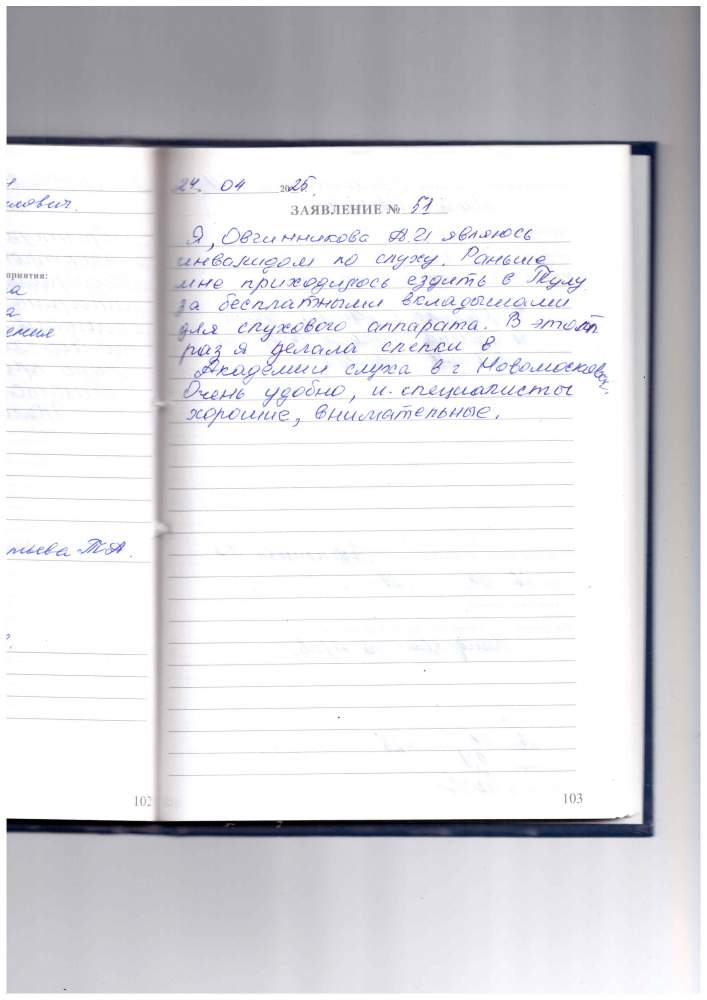 лович.
приятия:
а
а
ения
тьева Т.А.
102
24. 04 2025.
ЗАЯВЛЕНИЕ № 51
Я, Овчинникова А.И являюсь
инвалидом по слуху. Раньше
мне приходилось ездить в Тулу
за бесплатными вкладышами
для слухового аппарата. В этот
раз я делала слепки в
Академии слуха в г Новомосковск.
Очень удобно, и специалисты
хорошие, внимательные.
103